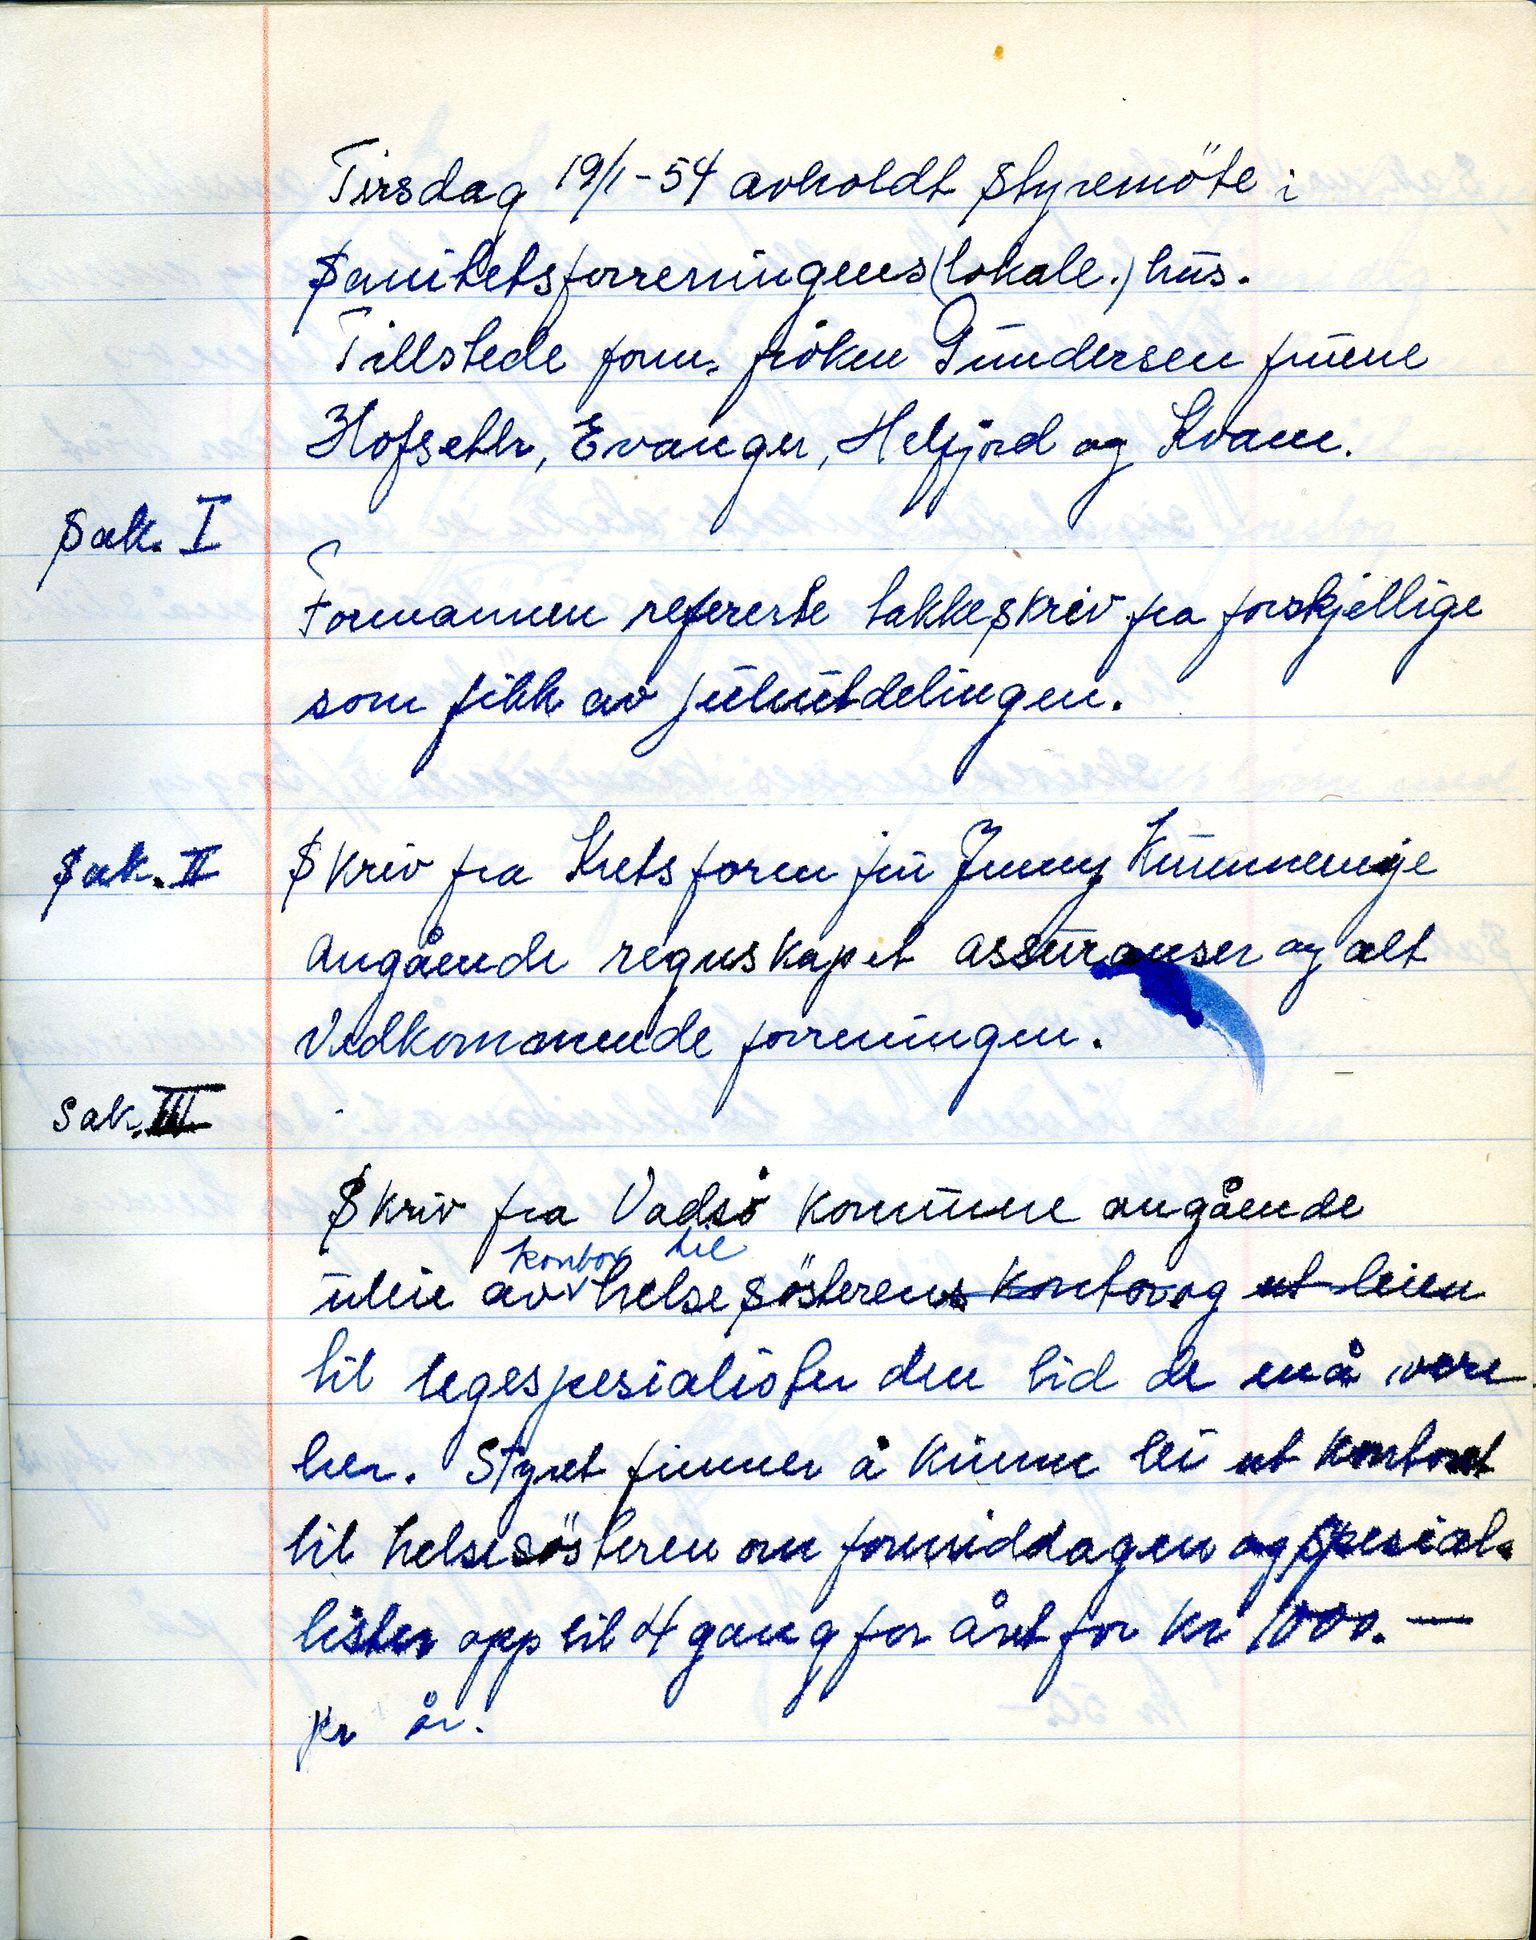 Tirsdag 19/1-54 avholdt styremöte i
Sanitetsforreningens (lokale.) hus.
Tillstede form. fröken Gundersen fruene
Hofseth, Evanger, Helfjord og Kvam.
Sak. I
Formannen refererte takkeskriv fra forskjellige
som fikk av juleutdelingen.
Sak. II Skriv fra Kretsform fru Jenny
angående regnskapet assuranser og alt
vedkommende forreningen.
Sak. III
Skriv fra Vadsö kommune angående
kontor til
utleie av helsesösterens kontor og ut leien
til legespesialister den tid de må være
her. Styret finner å kunne lei ut kontoret
til helsesösteren om formiddagen og spesial-
lister opp til 4 gang for året for kr 1000.—
pr år.